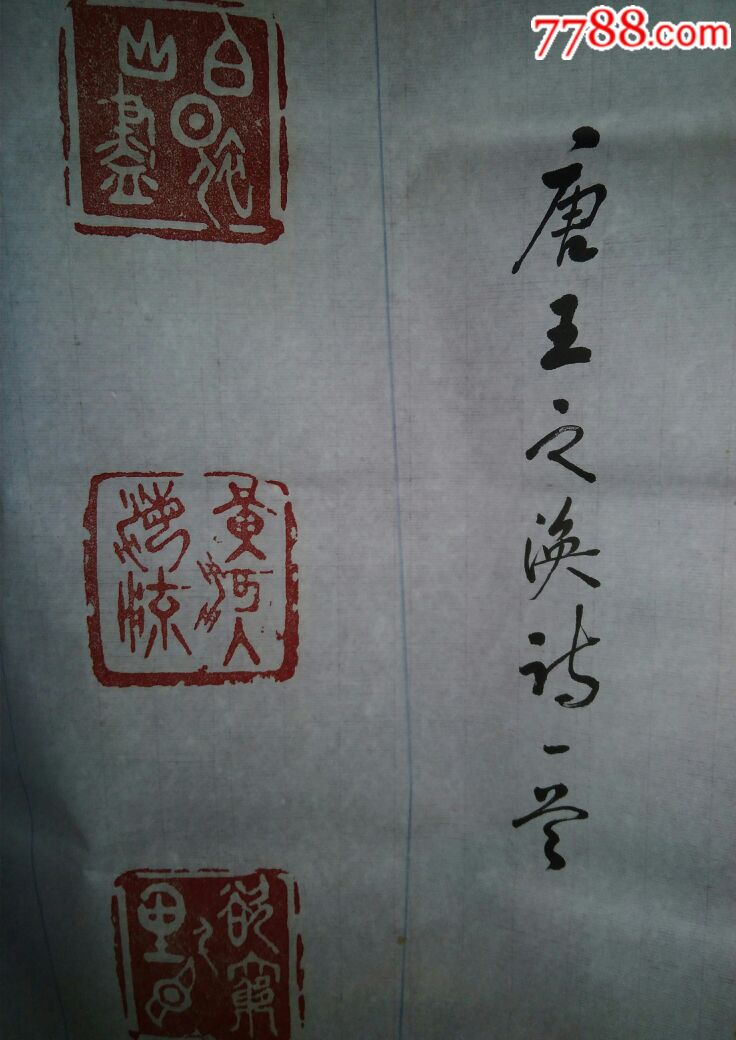 7788.com
唐王之涣诗一首
白日依山盡
黄河入海流
欲窮千里目